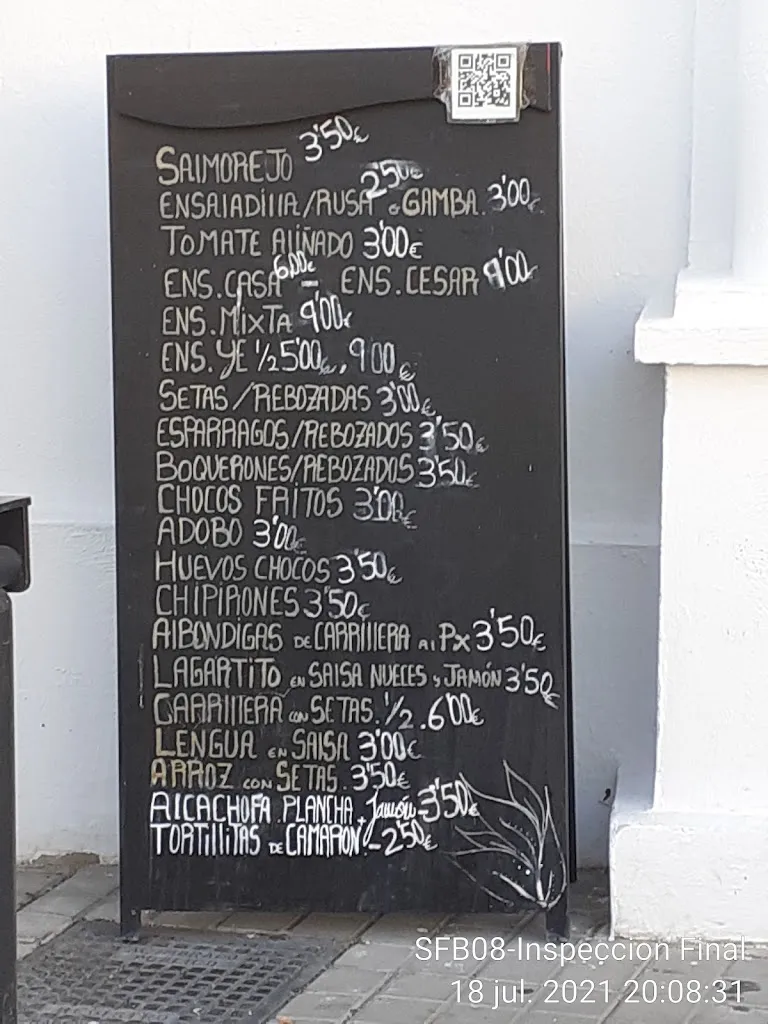 SALMOREJO 3'50€
ENSALADILLA/RUSA 2'50€ o GAMBA. 3'00€
TOMATE ALIÑADO 3'00€
ENS. CASA 6,00€ - ENS. CESAR 9'00
ENS. MIXTA 9'00€
ENS. YE 1/2 5'00€, 9'00€
SETAS/REBOZADAS 3'00€
ESPARRAGOS/REBOZADOS 3'50€
BOQUERONES/REBOZADOS 3'50€
CHOCOS FRITOS 3'00€
ADOBO 3'00€
HUEVOS CHOCOS 3'50€
CHIPIRONES 3'50€
ALBONDIGAS DE CARRILLERA AL PX 3'50€
LAGARTITO EN SALSA NUECES y JAMÓN 3'50€
CARRILLERA CON SETAS. 1/2. 6'00€
LENGUA EN SALSA 3'00€
ARROZ CON SETAS. 3'50€
ALCACHOFA PLANCHA + Jamón - 3'50€
TORTILLITAS DE CAMARON. - 2'50€
SFB08-Inspeccion Final
18 jul. 2021 20:08:31